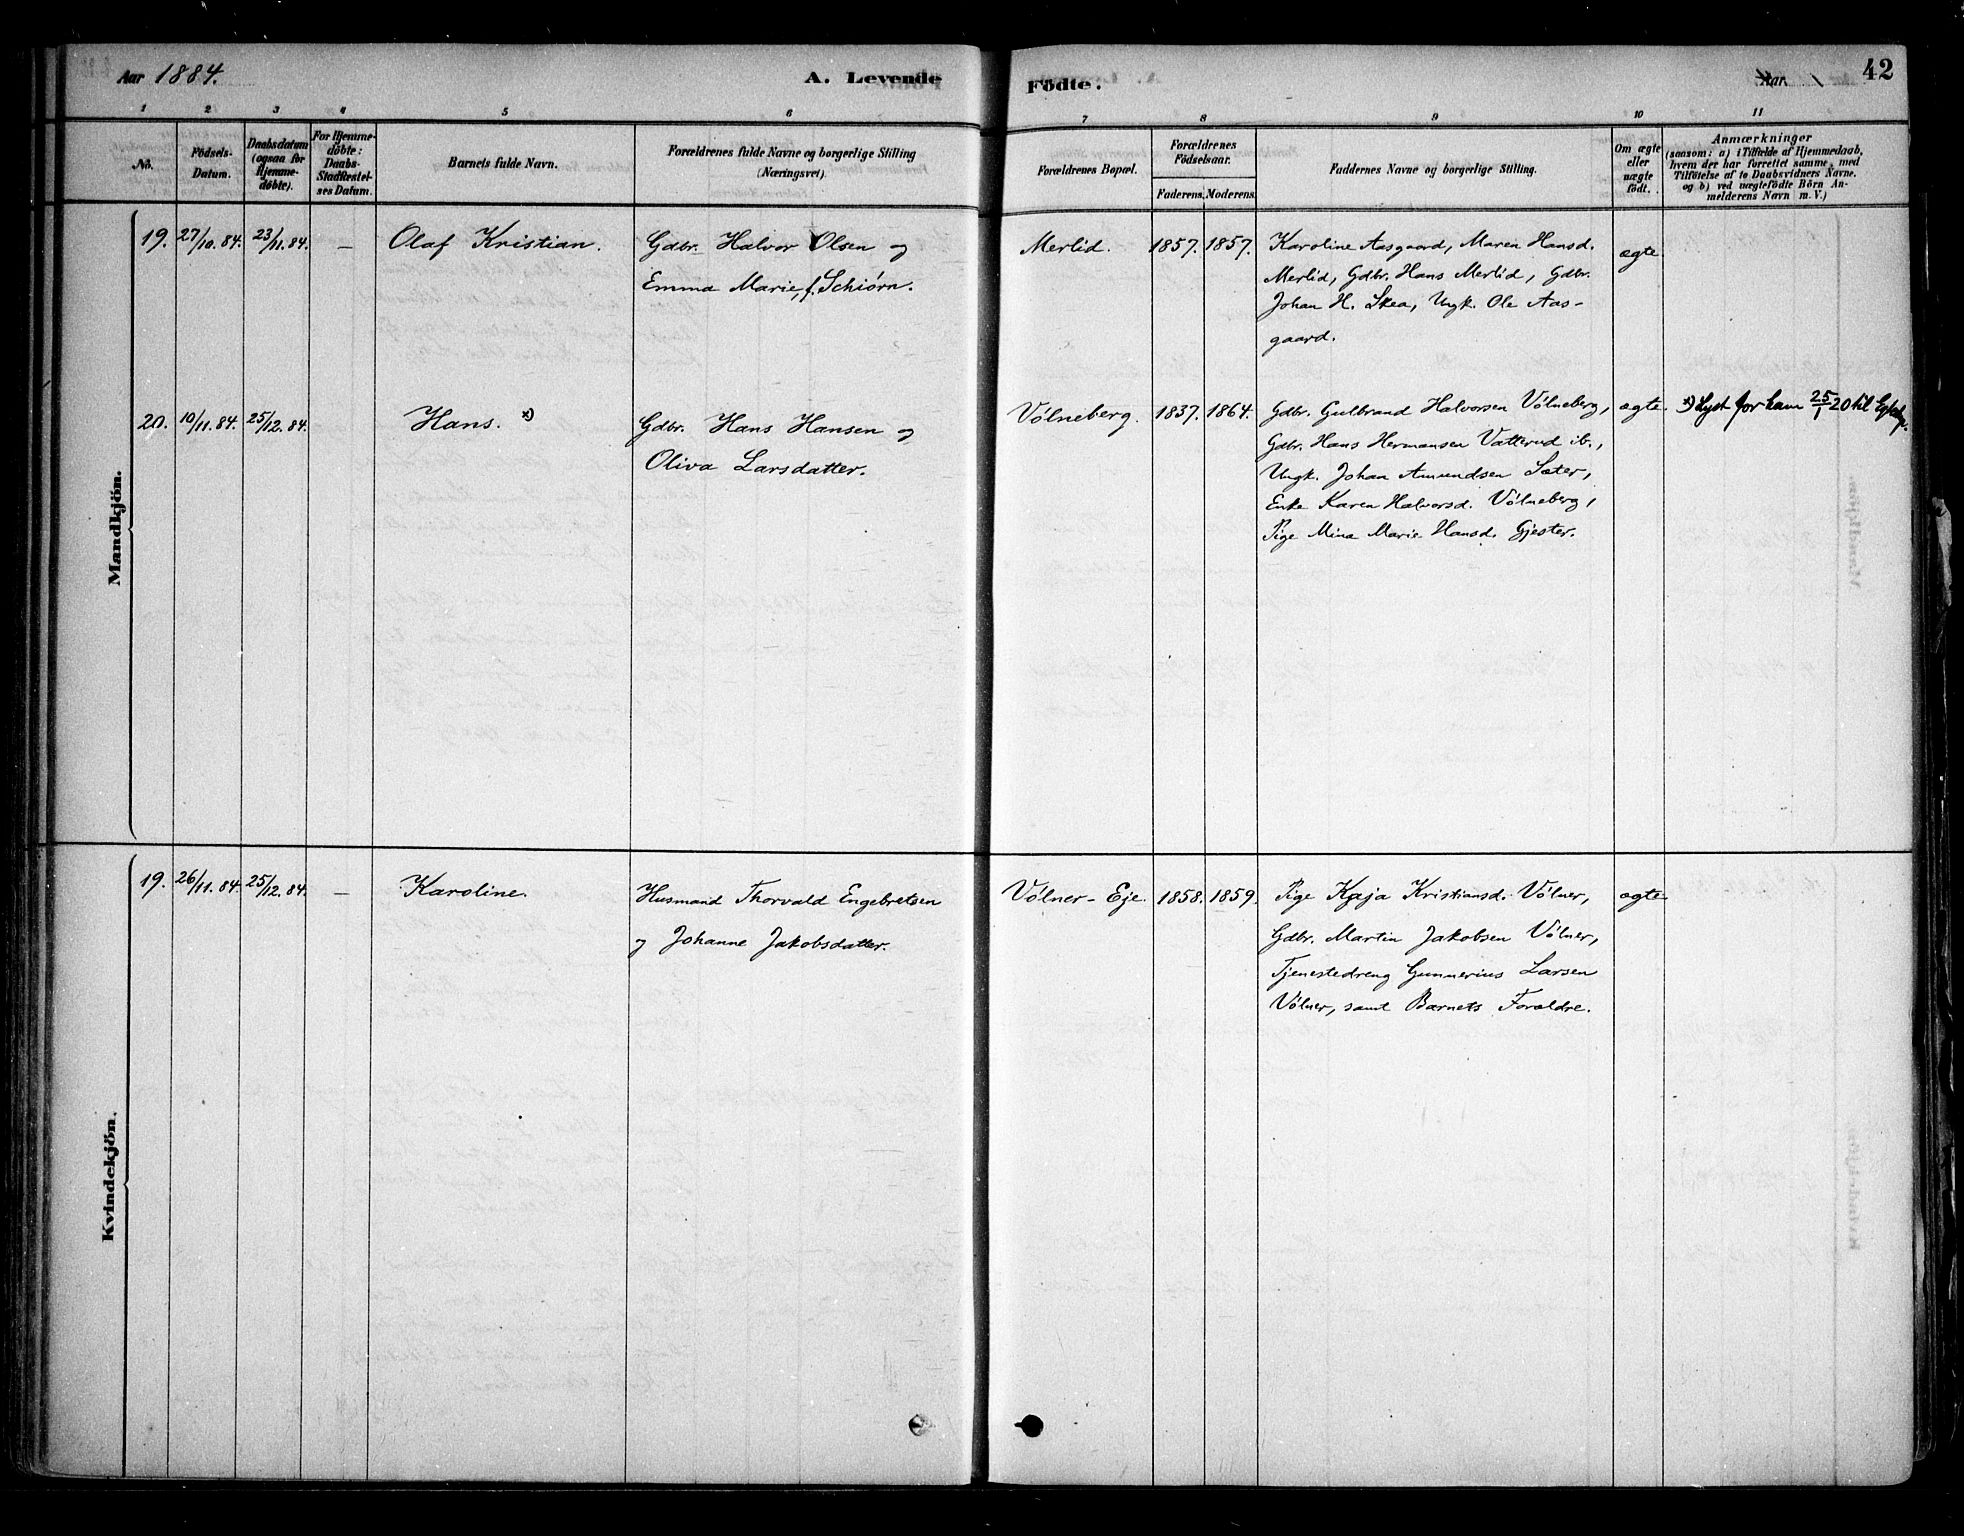 Aar 1884.
A. Levende
Födte.
Aar
42
1
2
3
4
5
6
7
8
9
10
11
No.
Födsels-
Datum.
Daabsdatum
(ogsaa for
Hjemme-
döbte).
For Hjemme-
döbte:
Daabs-
Stadfæstel-
ses Datum.
Barnets fulde Navn.
Forældrenes fulde Navne og borgerlige Stilling
(Næringsvei).
Forældrenes Bopæl.
Forældrenes
Födselsaar.
Faderens.
Moderens.
Faddernes Navne og borgerlige Stilling.
Om ægte
eller
uægte
födt.
Anmærkninger
(saasom: a) i Tilfælde af Hjemmedaab,
hvem der har forrettet samme, med
Tilföielse af to Daabsvidners Navne,
og b) ved uægtefödte Börn An-
melderens Navn m. V.)
Mandkjön.
19.
27/10. 84.
23/11. 84.
—
Olaf Kristian.
Gdbr. Halvor Olsen og
Emma Marie, f. Schiørn.
Merlid.
1857.
1857.
Karoline Aasgaard, Maren Hansd.
Merlid, Gdbr. Hans Merlid, Gdbr.
Johan H. Skea, Ungk. Ole Aas-
gaard.
ægte
20.
10/11. 84.
25/12. 84.
Hans. x)
Gdbr. Hans Hansen og
Oliva Larsdatter.
Vólneberg.
1837.
1864.
Gdbr. Gulbrand Halvorsen Vólneberg,
Gdbr. Hans Hermansen Vatterud ib.,
Ungk. Johan Amundsen Sæter,
Enke Karen Halvorsd. Vólneberg,
Pige Mina Marie Hansd. Gjester.
ægte.
x) Lyst for ham 25/1 20 til
Kvindekjön.
19.
26/11. 84.
25/12. 84.
—
Karoline.
Husmand Thorvald Engebretsen
og Johanne Jakobsdatter.
Vólner-Eje.
1858.
1859.
Pige Kaja Kristiansd. Vólner,
Gdbr. Martin Jakobsen Vólner,
Tjenestedreng Gunnerius Larsen
Vólner, samt Barnets Forældre.
ægte